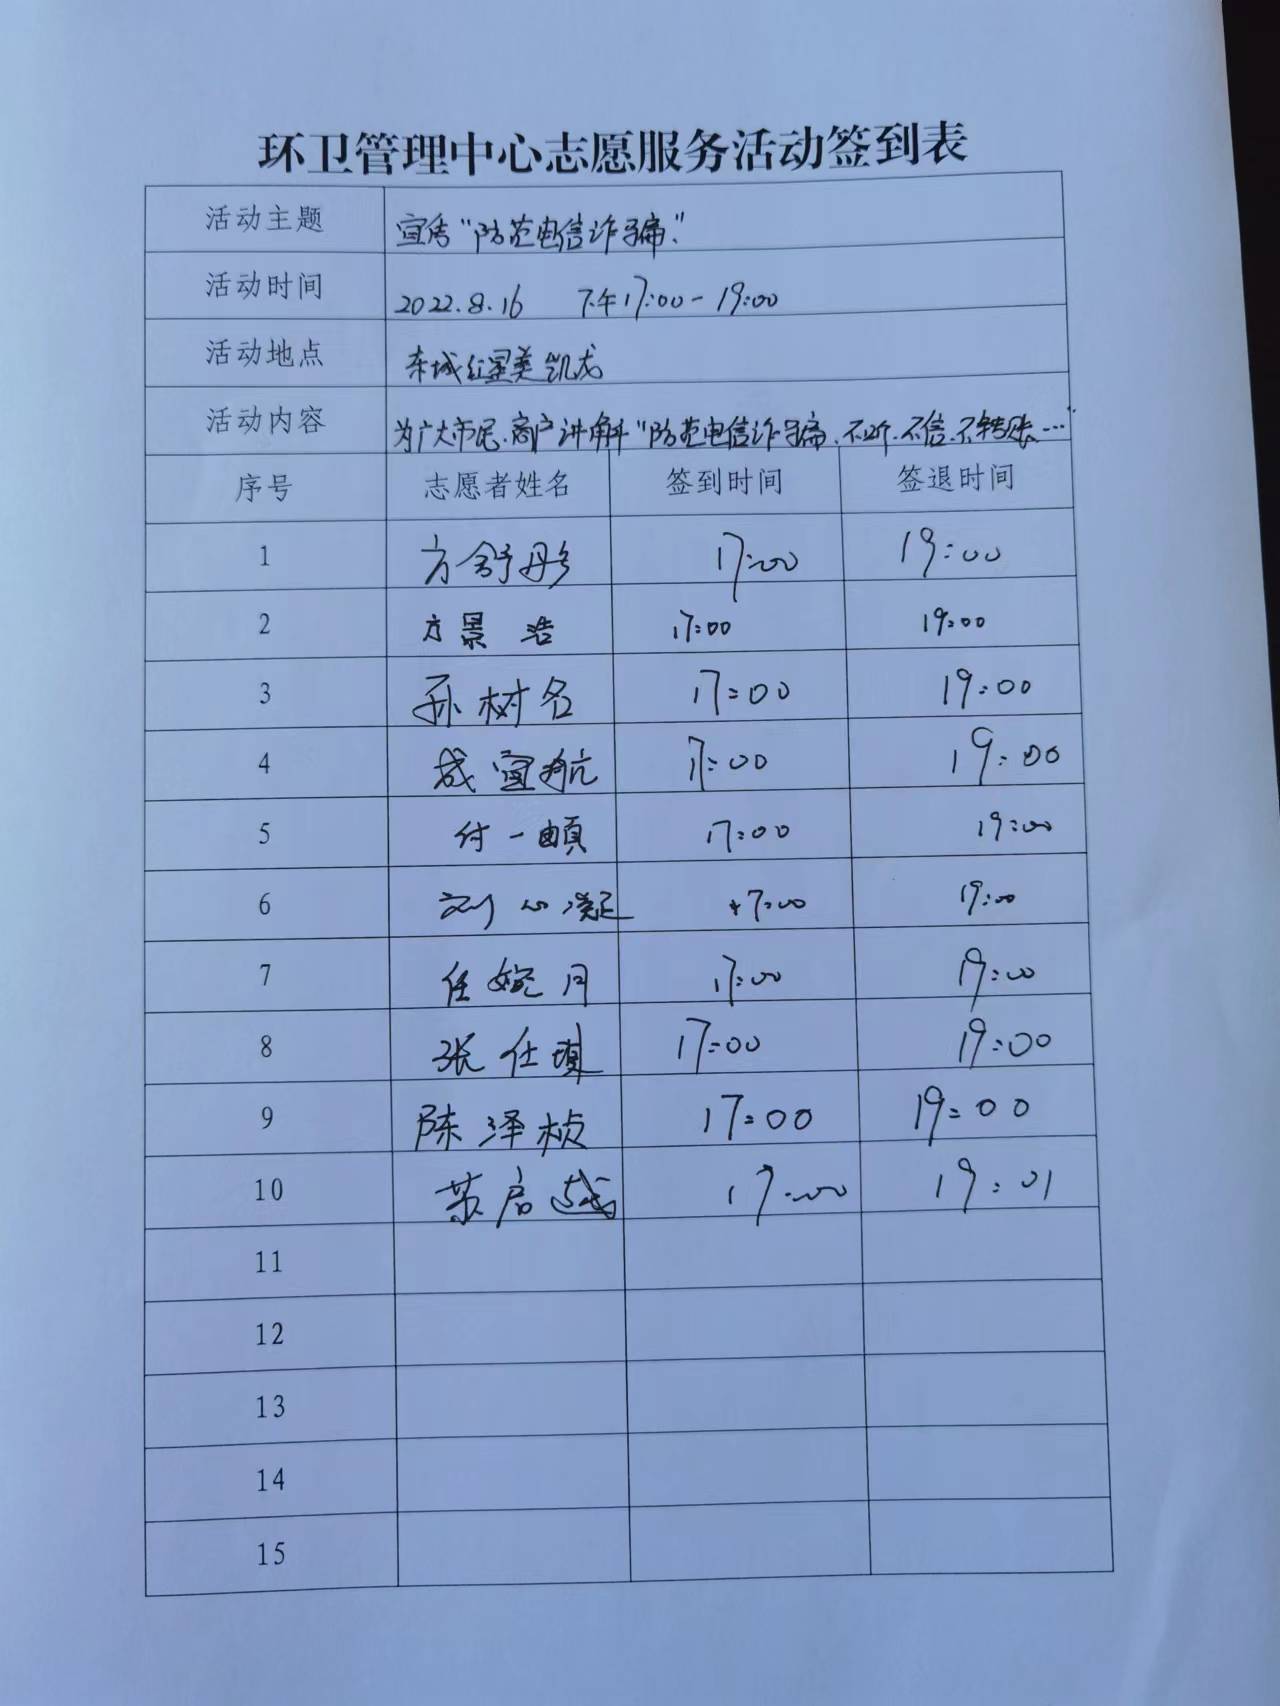 环卫管理中心志愿服务活动签到表
活动主题 宣传“防范电信诈骗”
活动时间 2022.8.16 下午17:00-19:00
活动地点 东城红星美凯龙
活动内容 为广大市民、商户讲解“防范电信诈骗、不听、不信、不转账…”
序号 志愿者姓名 签到时间 签退时间
1 方舒彤 17:00 19:00
2 方景浩 17:00 19:00
3 孙树名 17:00 19:00
4 成宣航 17:00 19:00
5 付一 17:00 19:00
6 刘心凝 17:00 19:00
7 任婉月 17:00 19:00
8 张仕琪 17:00 19:00
9 陈泽桢 17:00 19:00
10 启越 17:00 19:01
11
12
13
14
15